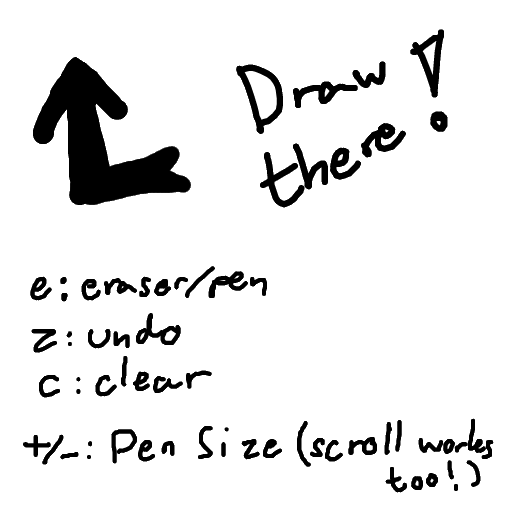 Draw
there!
e: eraser/pen
z: undo
c: clear
+/-: Pen Size (scroll works
too!)